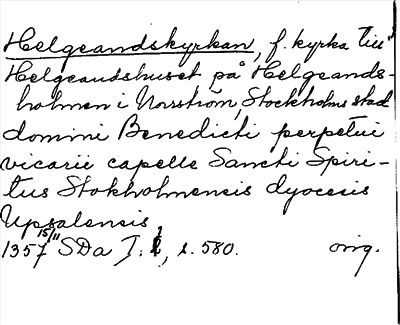 Helgeandskyrkan, f. kyrka till
Helgeandshuset på Helgeands-
holmen i Norrström, Stockholms stad
domini Benedicti perpetui
vicarii capelle Sancti Spiri-
tus Stokholmensis dyocesis
Upsalensis
1357 15/11 SDa J. , s. 580. orig.